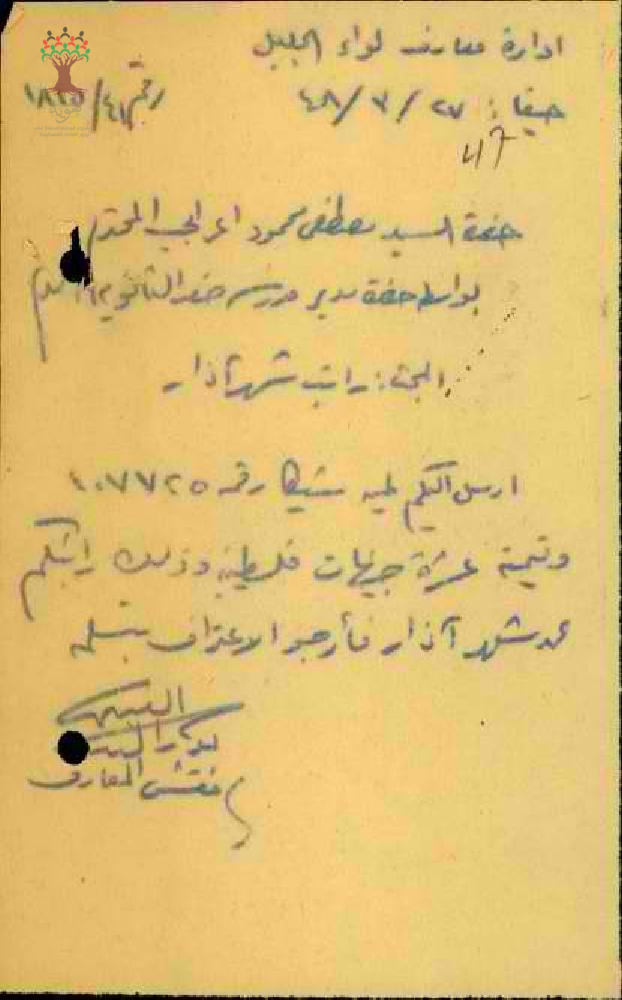 ادارة معارف لواء الجليل
حيفا: ٢٧ / ٣ / ٤٨ رقم
47
حضرة السيد مصطفى محمود المحترم
بواسطة حضرة مدير مدرسة صفد الثانوية
المبحث: راتب شهر آذار
ارسل اليكم طيه شيكا رقم ١٠٧٧٢٥
وقيمته عشرة جنيهات فلسطينية وذلك راتبكم
عن شهر آذار فأرجو الاعتراف بتسلمه
مفتش المعارف